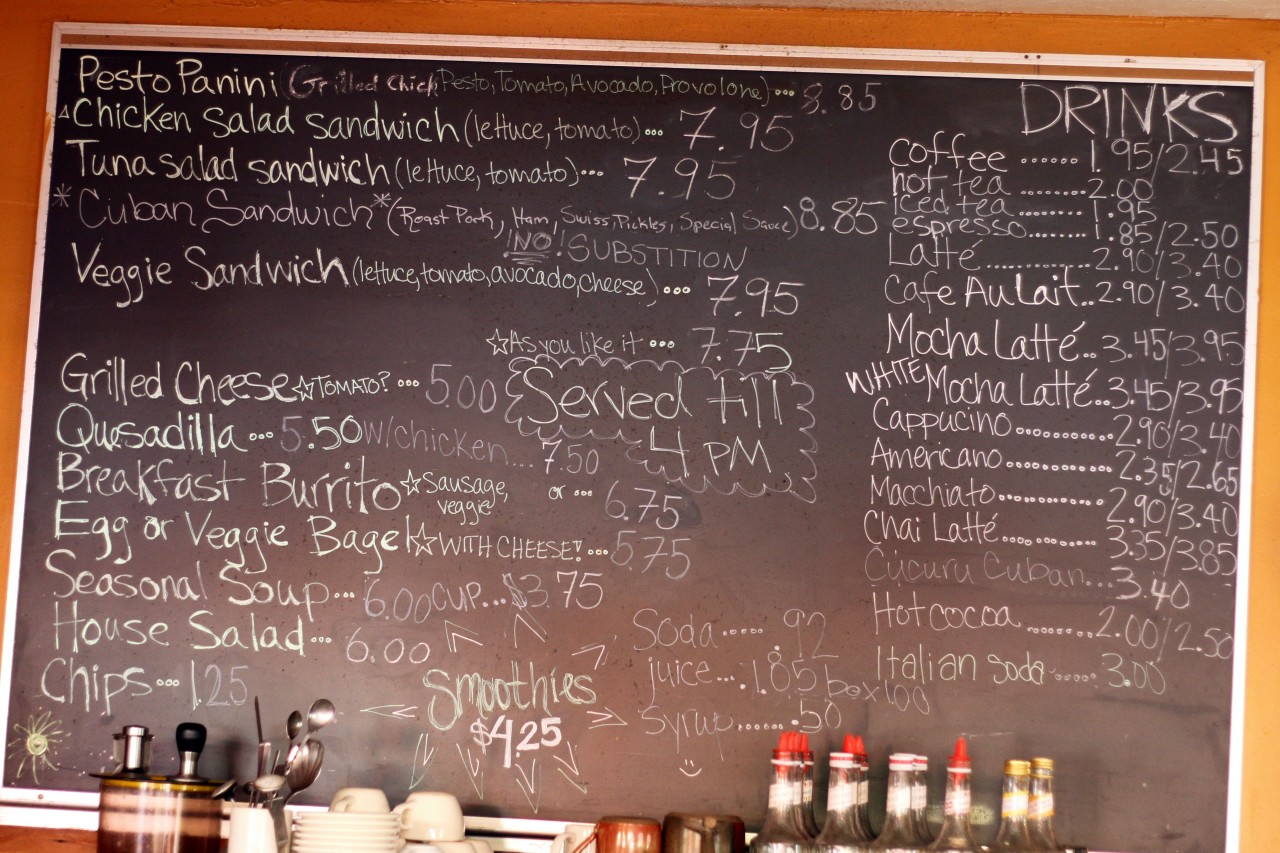 Pesto Panini (Grilled Chick, Pesto, Tomato, Avocado, Provolone)... 8.85
Chicken Salad sandwich (lettuce, tomato)... 7.95
Tuna salad sandwich (lettuce, tomato)... 7.95
*Cuban Sandwich* (Roast Pork, Ham, Swiss, Pickles, Special Sauce) 8.85
!NO! SUBSTITION
Veggie Sandwich (lettuce, tomato, avocado, cheese)... 7.95
☆As you like it... 7.75
Grilled Cheese ☆TOMATO?... 5.00
Served till
4 PM
Quesadilla... 5.50 w/chicken... 7.50
Breakfast Burrito ☆Sausage, or... 6.75
veggie
Egg or Veggie Bagel ☆WITH CHEESE!... 5.75
Seasonal Soup... 6.00 CUP... $3.75
House Salad... 6.00
Chips... 1.25
Smoothies
$4.25
Soda..... .92
juice...1.85 box 1.00
Syrup...... .50
DRINKS
coffee ...... 1.95/2.45
hot tea ........ 2.00
Iced tea ........ 1.85
espresso........ 1.85/2.50
Latté .............. 2.90/3.40
Cafe Au Lait.. 2.90/3.40
Mocha Latté.. 3.45/3.95
WHITE Mocha Latté.. 3.45/3.95
Cappucino........... 2.90/3.40
Americano........... 2.35/2.65
Macchiato........... 2.90/3.40
Chai Latté.......... 3.35/3.85
Cucuru Cuban... 3.40
Hot cocoa ........ 2.00/2.50
Italian Soda ..... 3.00